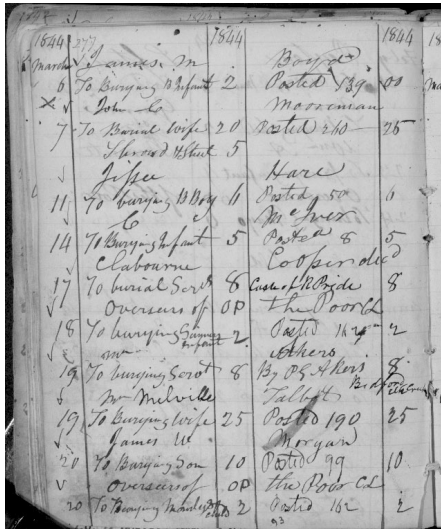 1844 277 1844 1844
March James. M Boyd
6 To Burying B Infant 2 Posted 139 00
John C Mooreman
7 To Burial wife 20 Posted 260 25
Shroud & Steel 5
Jesse Hare
11 To burying B Boy 6 Posted 50 6
C McIver
14 To Burying Infant 5 Posted 8 5
Clabourne Cooper decd
17 To burial Servt 8 Cash of R Pride 8
Overseers of OP the Poor CL
18 To burying infant 2 Posted 162 2
Mr Akers
19 To burying Servt 8 By P G Akers 8
Mr Melville Talbot
19 To Burying wife 25 Posted 190 25
James W Morgan
20 To Burying Son 10 Posted 99 10
overseers of OP the Poor CL
20 To Burying 2 Posted 162 2
93